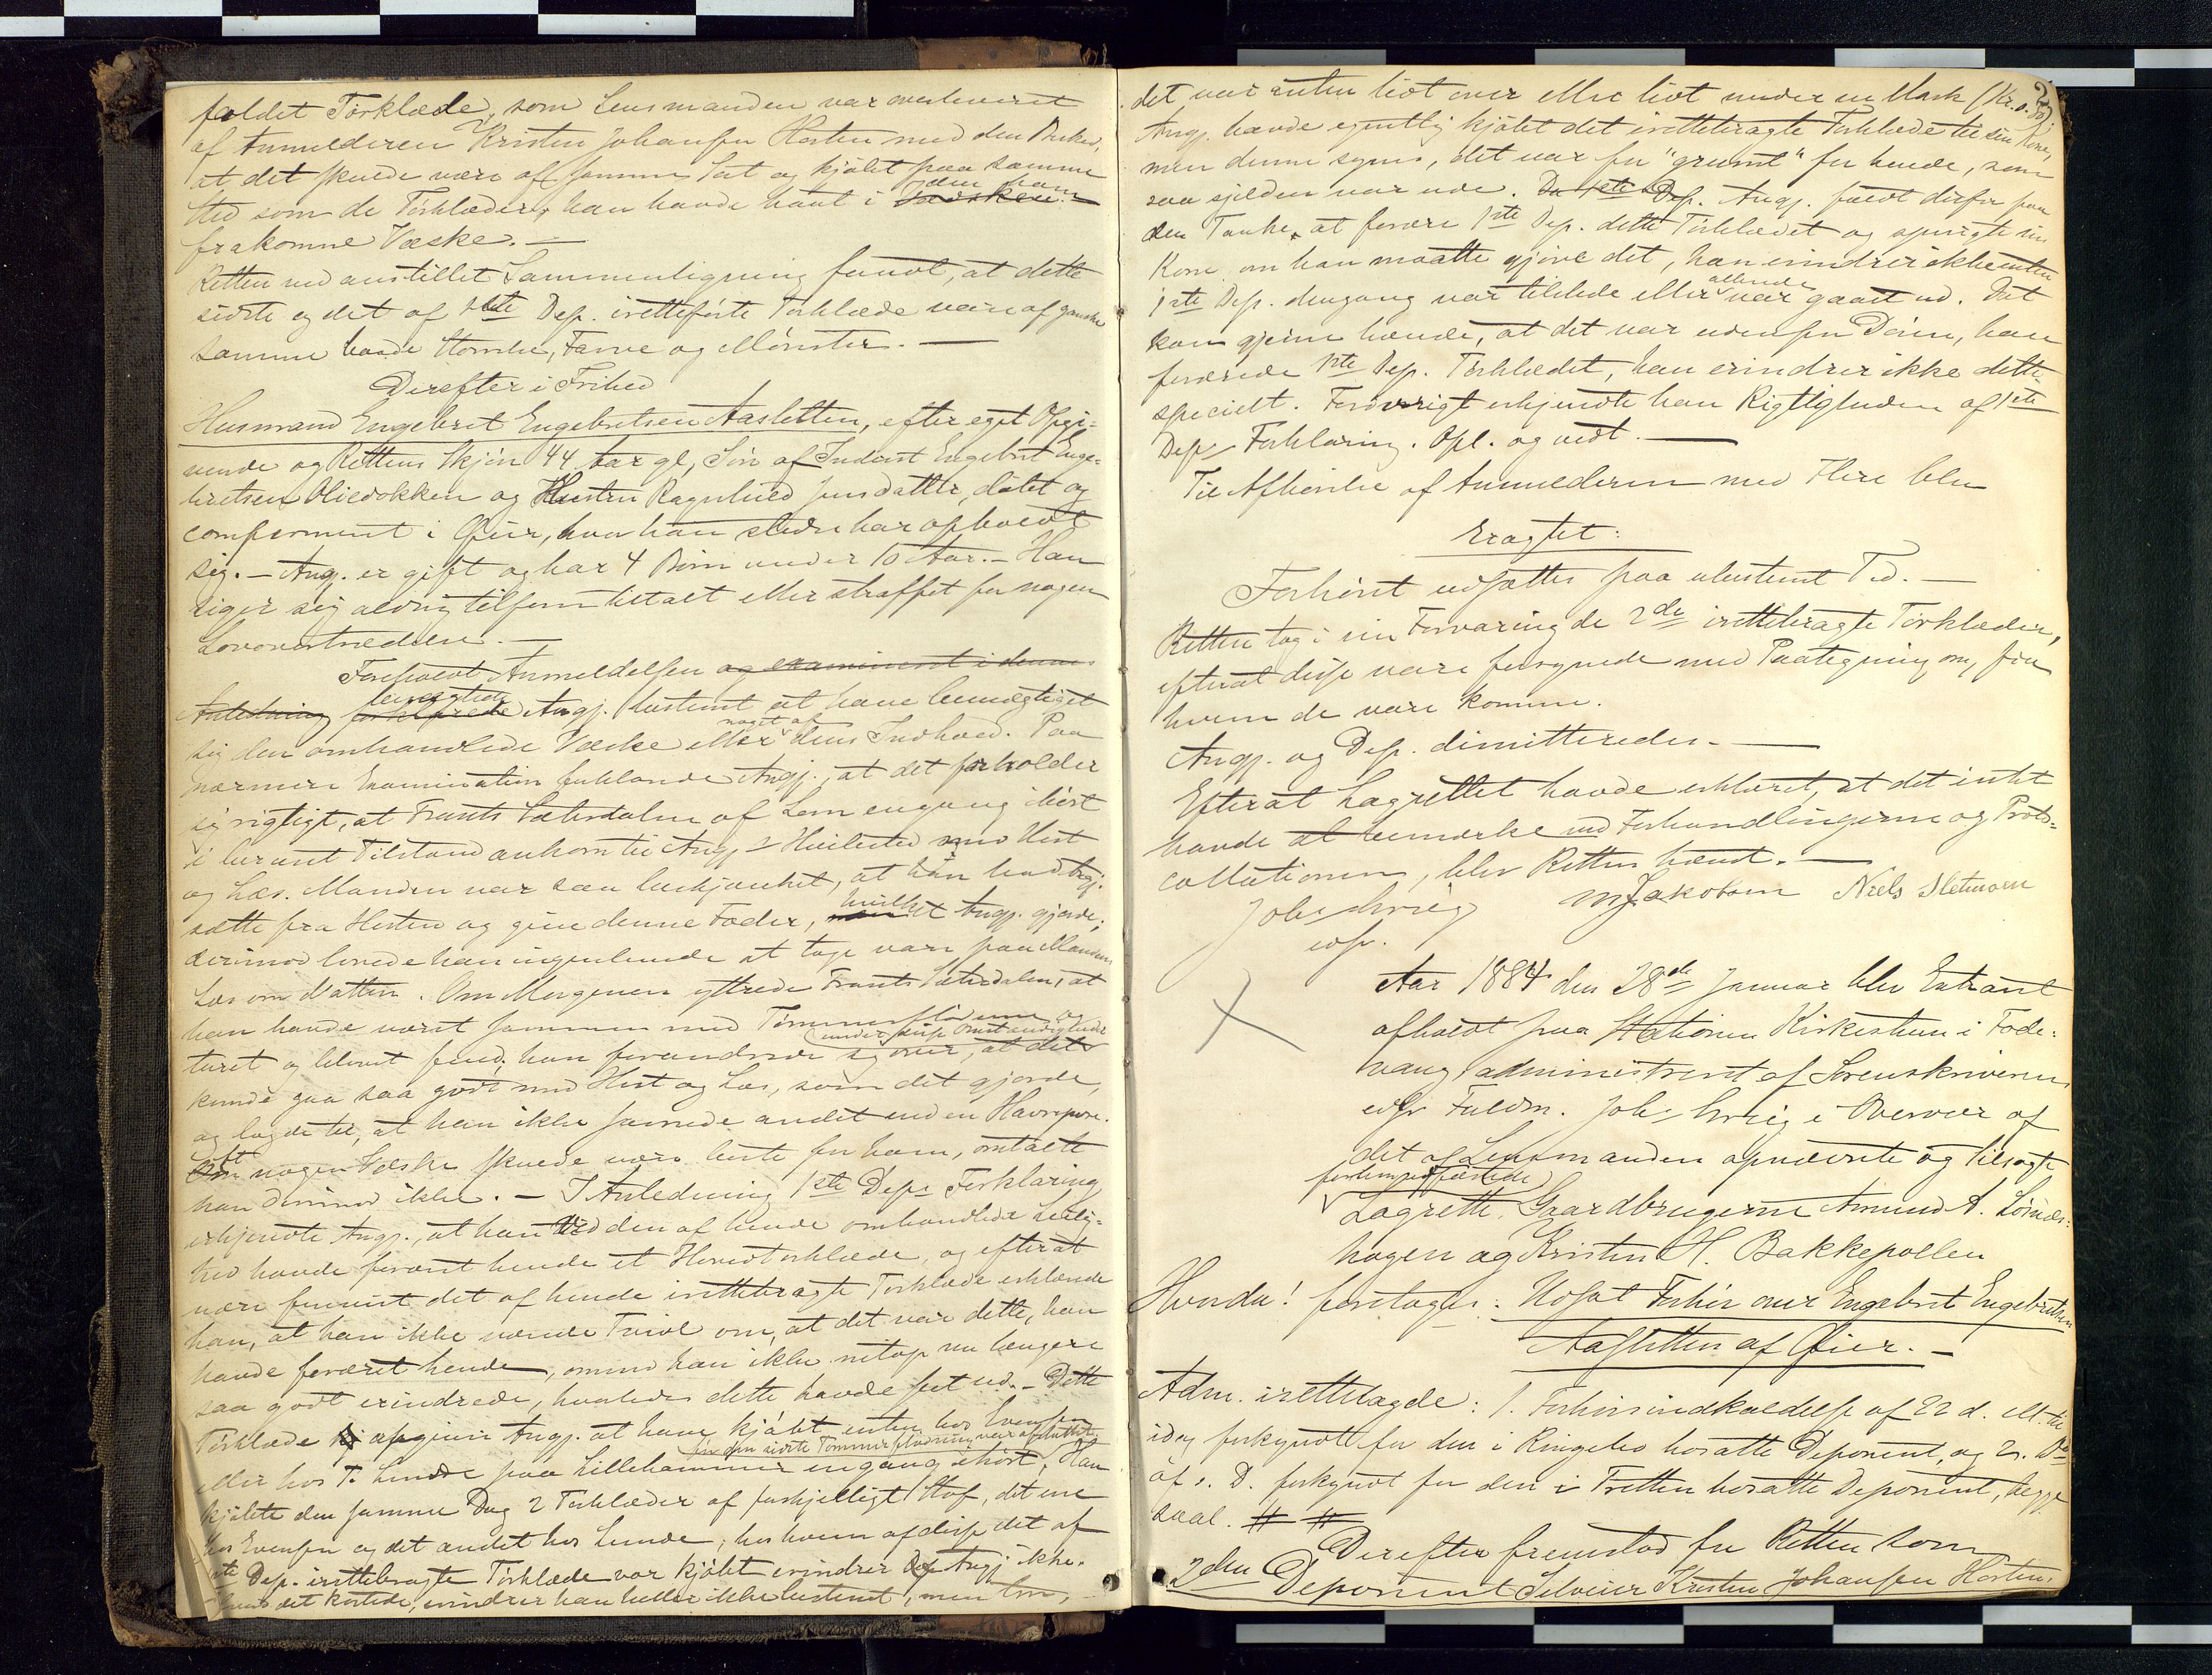 foldet Tørklæde, som Lensmanden var overleveret
af Anmelderen Kristen Johansen Horten med den Bemærk.
at det skulde være af samme Sort og kjøbt paa samme
Sted som de Tørklæder, han havde havt i den ham
frakomne Væske. —
Retten ved anstillet Sammenligning fandt, at dette
sidste og det af 1ste Dep. iretteførte Tørklæde var af ganske
samme baade Størrelse, Farve og Mønster. —
Derefter i Frihed
Husmand Engebret Engebretsen Aasletten, efter eget Opgi-
vende og Rettens Skjøn 44 Aar gl, Søn af Inderst Engebret Enge-
bretsen Oliedokken og Hustru Ragnhild Jensdatter, døbt og
confirmeret i Øier, hvor han stedse har opholdt
sig. — Angj. er gift og har 4 Børn under 10 Aar. — Han
siger sig aldrig tilforn tiltalt eller straffet for nogen
Lovovertrædelse. —
Foreholdt Anmeldelsen og examineret i denne
Anledning forklarede benegtede Angj. bestemt at have bemægtiget
sig den omhandlede Væske eller noget af dens Indhold. Paa
nærmere Examination forklarede Angj., at det forholder
sig rigtigt, at Frants Sætersdalen af Lom engang ihøst
i beruset Tilstand ankom til Angj.s Hvilested med Hest
og Læs. Manden var saa beskjænket, at han bad Angj.
sætte fra Hesten og give denne Foder, hvilket Angj. gjorde;
derimod lovede han ingenlunde at tage vare paa Mandens
Læs om Natten. Om Morgenen yttrede Frants Sætersdalen, at
han havde været sammen med Tømmerfløderne og
turet og blevet fuld, han forundrede sig over, at det under disse Omstændigheder
kunde gaa saa godt med Hest og Læs, som det gjorde,
og lagde til, at han ikke savnede andet end en Havrepose.
At nogen Væske skulde være borte for ham, omtalte
han derimod ikke. — I Anledning 1ste Deps Forklaring
erkjendte Angj., at han ved den af hende omhandlede Leilig-
hed havde foræret hende et Hovedtørklæde, og efterat
være forevist det af hende irettebragte Tørklæde erklærede
han, at han ikke nærede Tvivl om, at det var dette, han
havde foræret hende, omend han ikke netop nu længere
saa godt erindrede, hvorledes dette havde seet ud. — Dette
Tørklæde opgiver Angj. at have kjøbt enten hos Evensen
eller hos T. Lunde paa Lillehammer engang ihøst, før den sidste Tømmerflødning var afsluttet. Han
kjøbte den samme Dag 2 Tørklæder af forskjelligt Stof, det ene
hos Evensen og det andet hos Lunde; hos hvem af disse det af
1ste Dep. irettebragte Tørklæde var kjøbt erindrer Angj. ikke.
Hvad det kostede, erindrer han heller ikke bestemt, men tror,
det var enten lidt over eller lidt under en Mark (Kr. 0.80).
Angj. havde egentlig kjøbt det irettebragte Tørklæde til sin Kone,
men denne synes, det var for "grumt" for hende, som
saa sjelden var ude. Da 1ste Dep. Angj. faldt derfor paa
den Tanke, at forære 1ste Dep. dette Tørklædet og spurgte sin
Kone om han maatte gjøre det, han erindrer ikke enten
1ste Dep. dengang var tilstede eller allerede var gaaet ud. Det
kan gjerne hænde, at det var udenfor Døren, han
forærede 1ste Dep. Tørklædet, han erindrer ikke dette
specielt. Forøvrigt erkjendte han Rigtigheden af 1ste
Deps Forklaring. Opl. og vedt. —
Til Afhørelse af Anmelderen med Flere blev
Eragtet:
Forhøret udsættes paa ubestemt Tid. —
Retten tog i sin Forvaring de 2de irettebragte Tørklæder,
efterat disse vare forsynede med Paategning om, fra
hvem de vare komne.
Angj. og Dep. dimitteredes. —
Efterat Lagrettet havde erklæret, at det intet
havde at bemærke ved Forhandlingerne og Proto-
collationen, blev Retten hævet. —
Joh. Schweig M Jakobsen Niels Sletmoen
edsv.
Aar 1884 den 28de Januar blev Extraret
afholdt paa Stationen Kirkestuen i Faa-
vang administreret af Sorenskriverens
edsv. Fuldm. Joh. Schweig i Overvær af
det af Lensmanden opnævnte og tilsagte
forhen edfæstede
Lagrette, Gaardbrugerne Amund A. Løsnæs-
hagen og Kristen H. Bakkepollen
Hvorda! foretages: Udsat Forhør over Engebret Engebretsen
Aasletten af Øier. —
Adm. irettelagde: 1. Forhørsindkaldelse af 22 d. M. til
idag forkyndt for den i Ringebo bosatte Deponent, og 2. Do
af s. D. forkyndt for den i Tretten bosatte Deponent, begge
saal.
Derefter fremstod for Retten som
2den Deponent Selveier Kristen Johansen Horten,